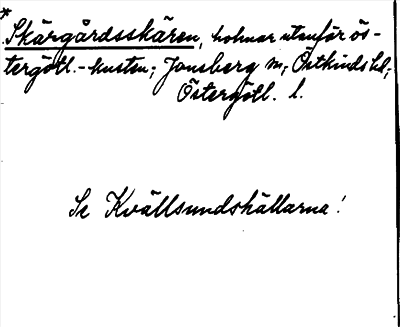 * Skärgårdsskären, holmar utanför ös-
tergötl.-kusten; Jonsberg sn, Östkinds hd,
Östergötl. l.
Se Kvällsundshällarna!